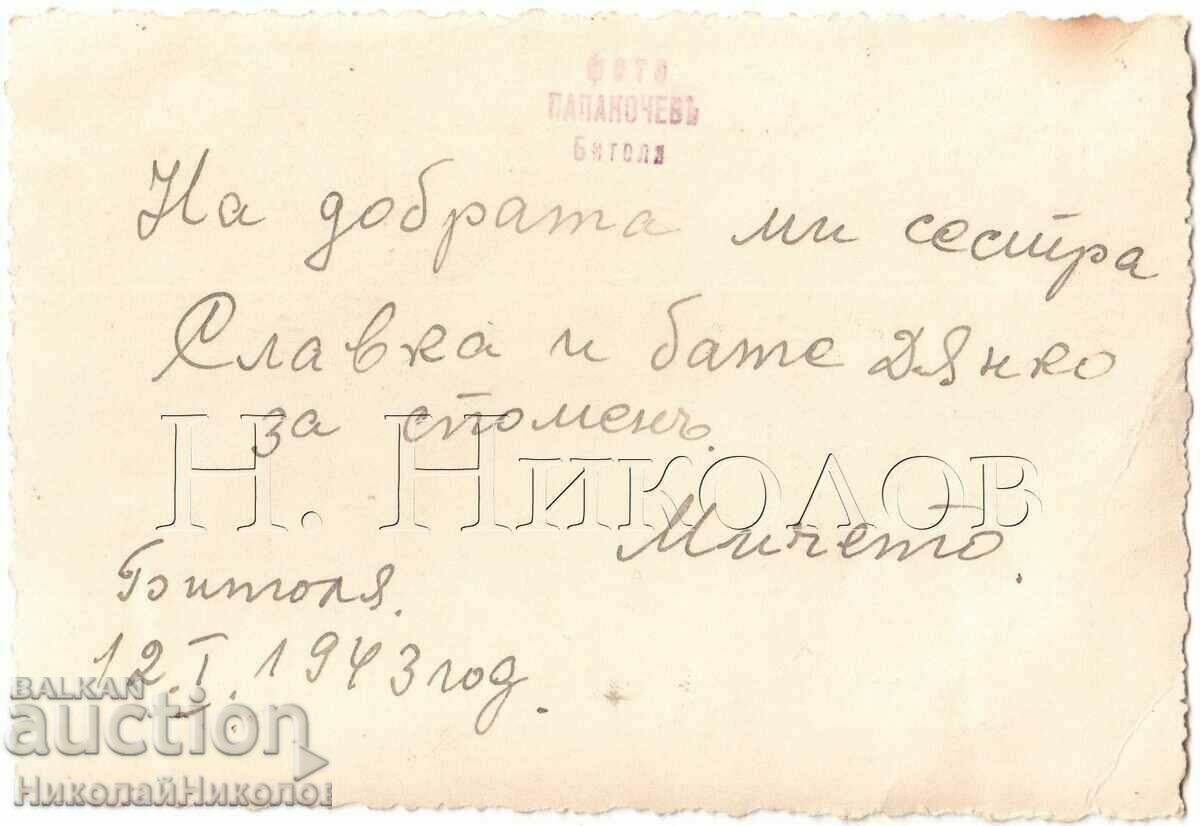 фото
ПАПАКОЧЕВЪ
Битоля
На добрата ми сестра
Славка и бате Дянко
за споменъ.
Н. Николов
Мичето.
Битоля.
12.I.1943 год.
BALKAN
auction
НиколайНиколов